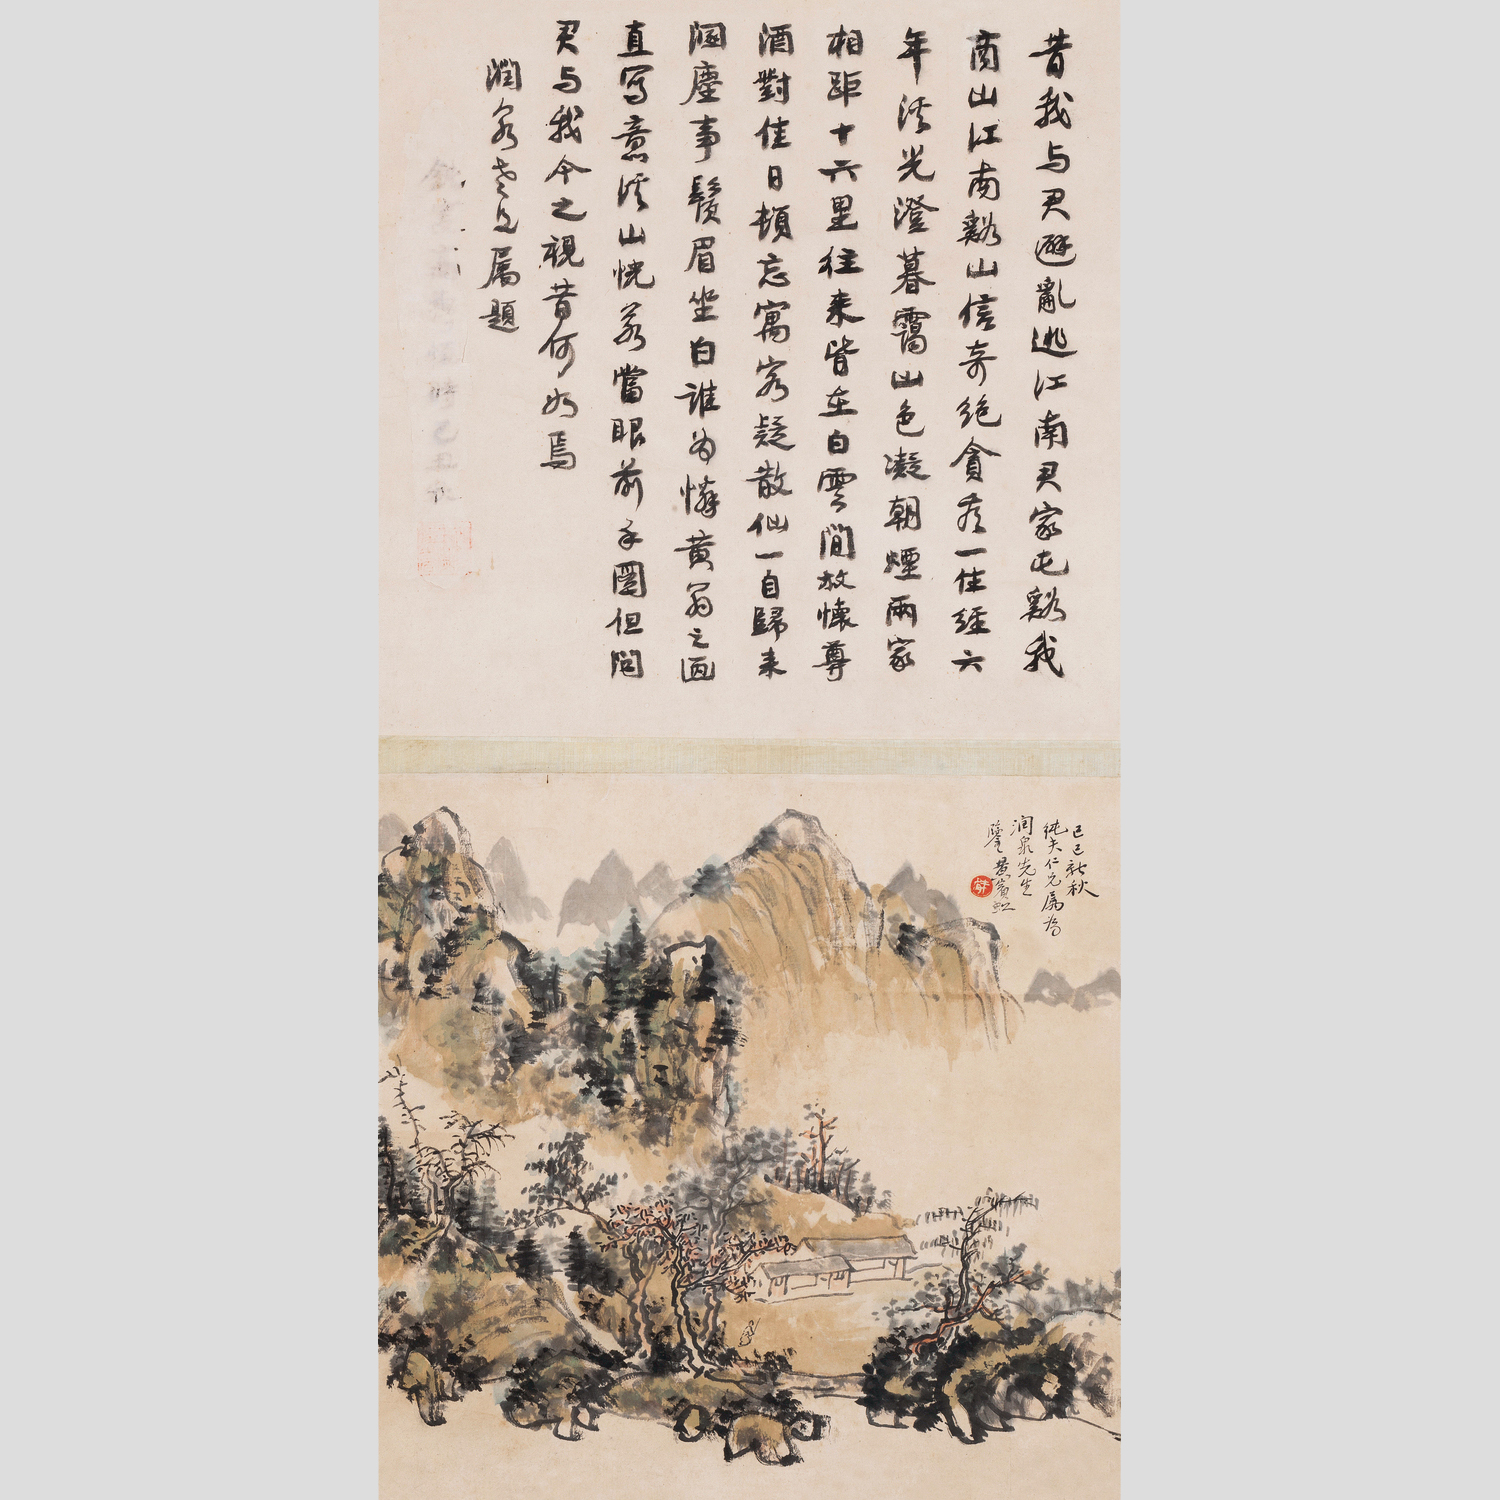 昔我与君避亂逃江南君家屯谿我
商山江南谿山信奇绝貪夜一住經六
年溪光澄暮靄山色凝朝煙兩家
相距十六里往来皆在白雲間放懷尊
酒對佳日頓忘寓客疑散仙一自歸来
溷塵事鬓眉坐白誰為憐黄翁之画
直写意溪山恍若當眼前手圖但問
君与我今之視昔何如焉
潤泉老兄属題
己巳新秋
純夫仁兄属為
润泉先生
鑒 黄賓虹